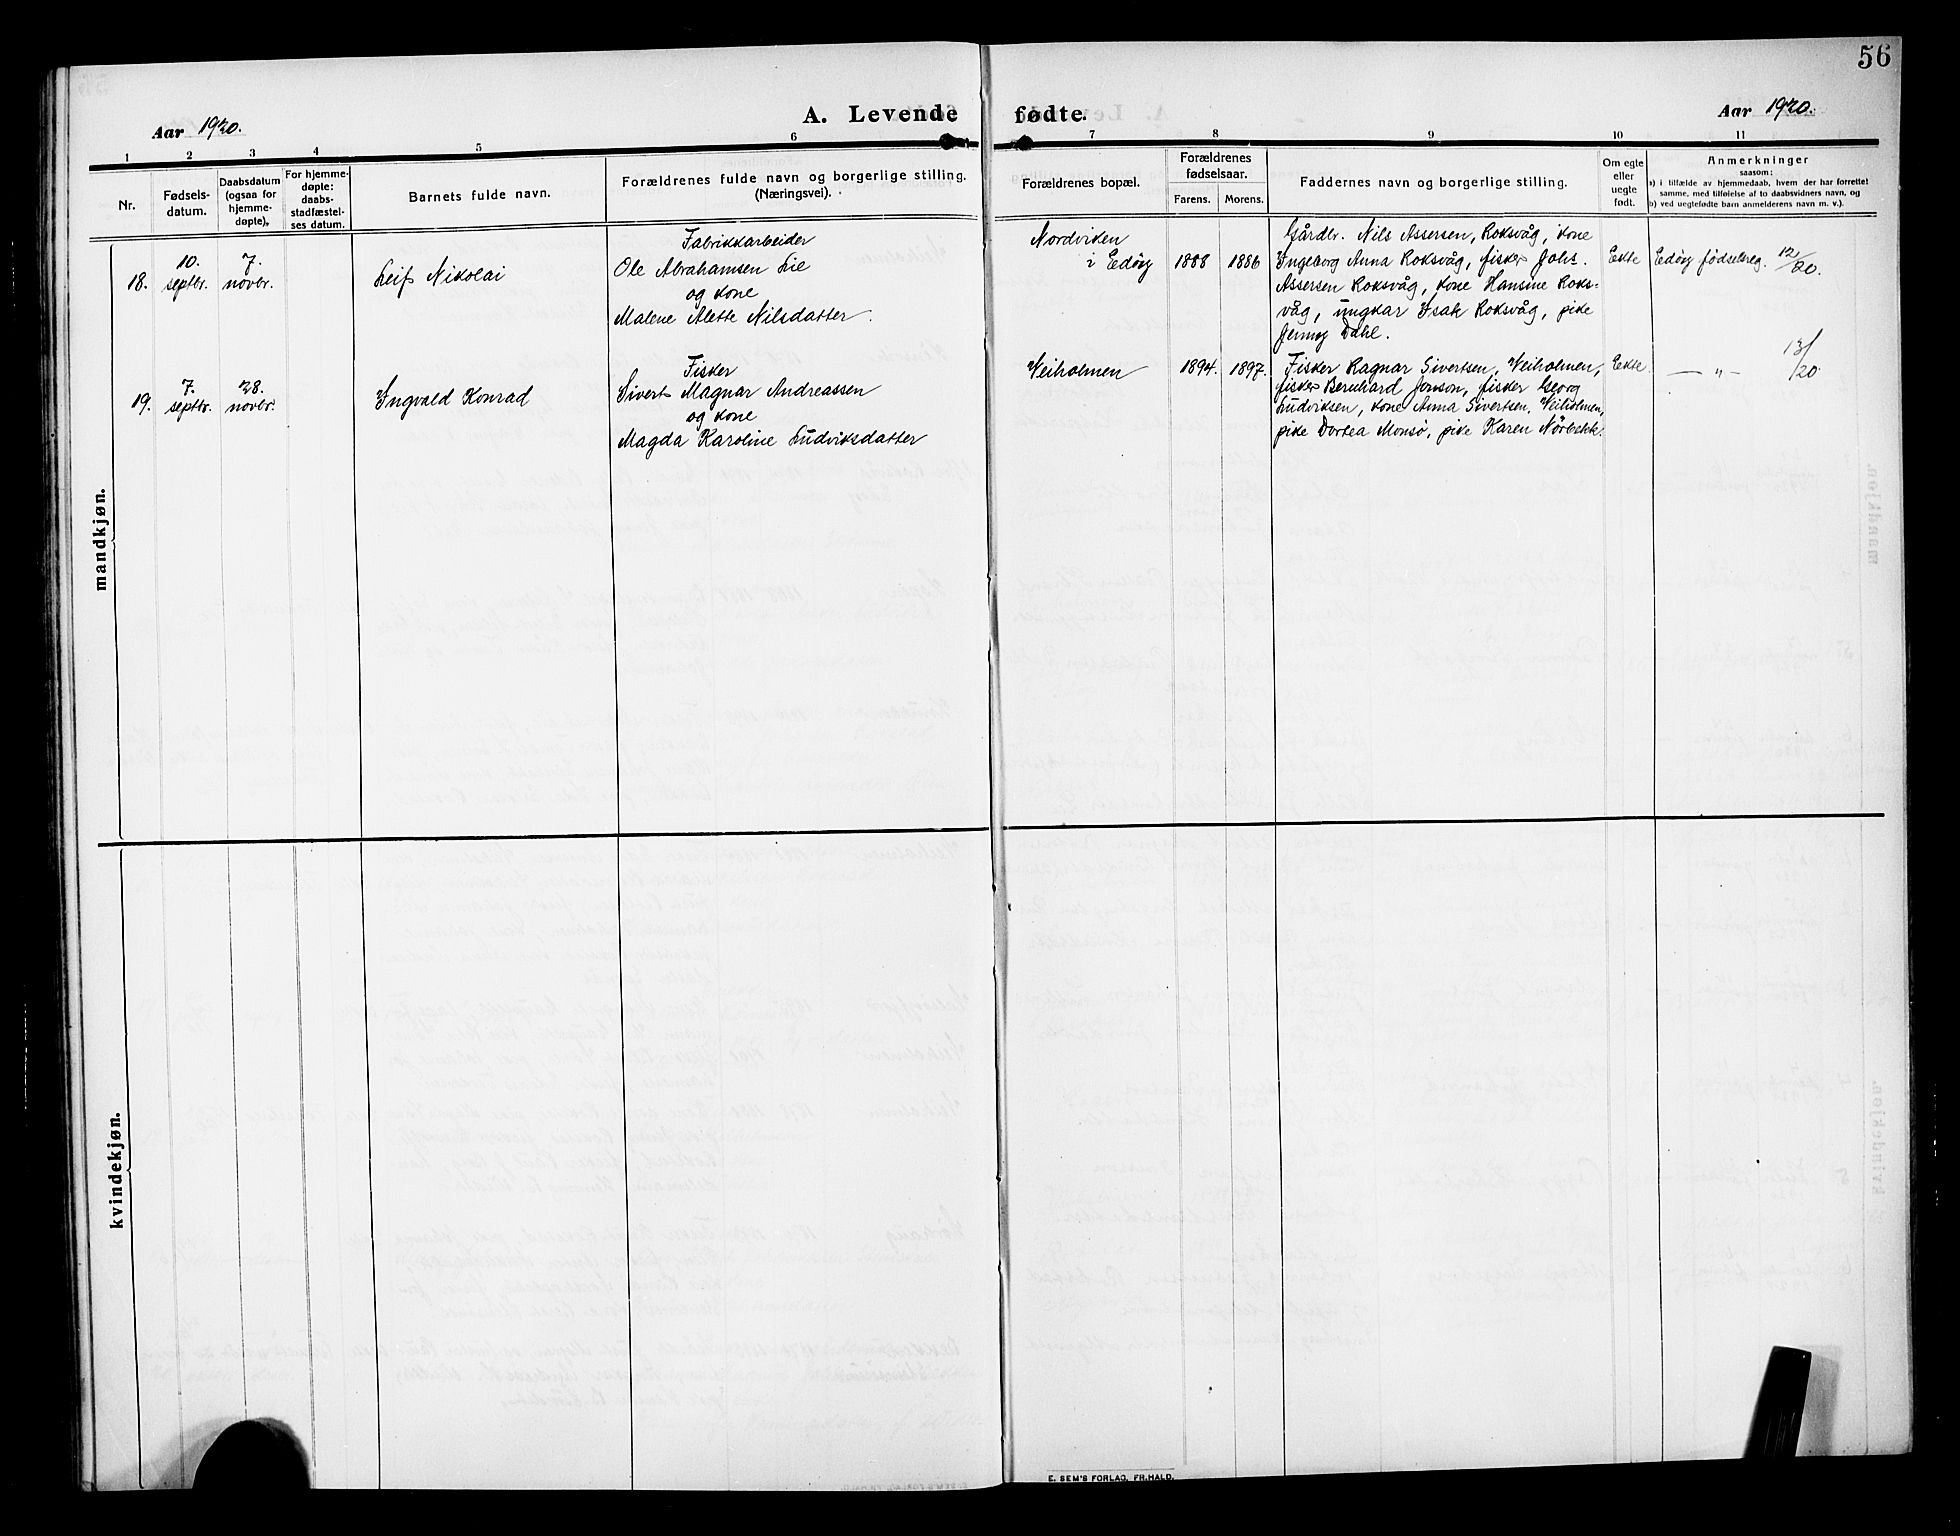 56
A. Levende fødte.
Aar 1920.
Aar 1920.
1 2 3 4 5 6 7 8 9 10 11
Nr.
Fødsels-
datum.
Daabsdatum
(ogsaa for
hjemme-
døpte).
For hjemme-
døpte:
daabs-
stadfæstel-
ses datum.
Barnets fulde navn.
Forældrenes fulde navn og borgerlige stilling.
(Næringsvei).
Forældrenes bopæl.
Forældrenes
fødselsaar.
Farens. Morens.
Faddernes navn og borgerlige stilling.
Om egte
eller
uegte
født.
Anmerkninger
saasom:
a) i tilfælde av hjemmedaab, hvem der har forrettet
samme, med tilføielse af to daabsvidners navn, og
b) ved uegtefødte barn anmelderens navn m. v.).
mandkjøn.
18.
10.
septbr.
7.
novbr.
Leif Nikolai
Fabrikkarbeider
Ole Abrahamsen Lie
og kone
Malene Alette Nilsdatter.
Nordviken
i Edøy
1888 1886
Gårdbr. Nils Assersen, Roksvåg, kone
Ingeborg Anna Roksvåg, fisker Johs.
Assersen Roksvåg, kone Hansine Roks-
våg, ungkar Isak Roksvåg, pike
Jenny Dahl.
Ekte
Edøy fødselsreg. 12/20.
19.
7.
septbr.
28.
novbr.
Ingvald Konrad
Fisker
Sivert Magnar Andreassen
og kone
Magda Karoline Ludviksdatter
Veiholmen
1894. 1897.
Fisker Ragnar Sivertsen, Veiholmen,
fisker Bernhard Jonson, fisker Georg
Ludviksen, kone Anna Sivertsen, Veiholmen,
pike Dortea Monsø, pike Karen Nørbekk.
Ekte.
— „ — 13/20
kvindekjøn.
E. SEM'S FORLAG, FR.HALD.